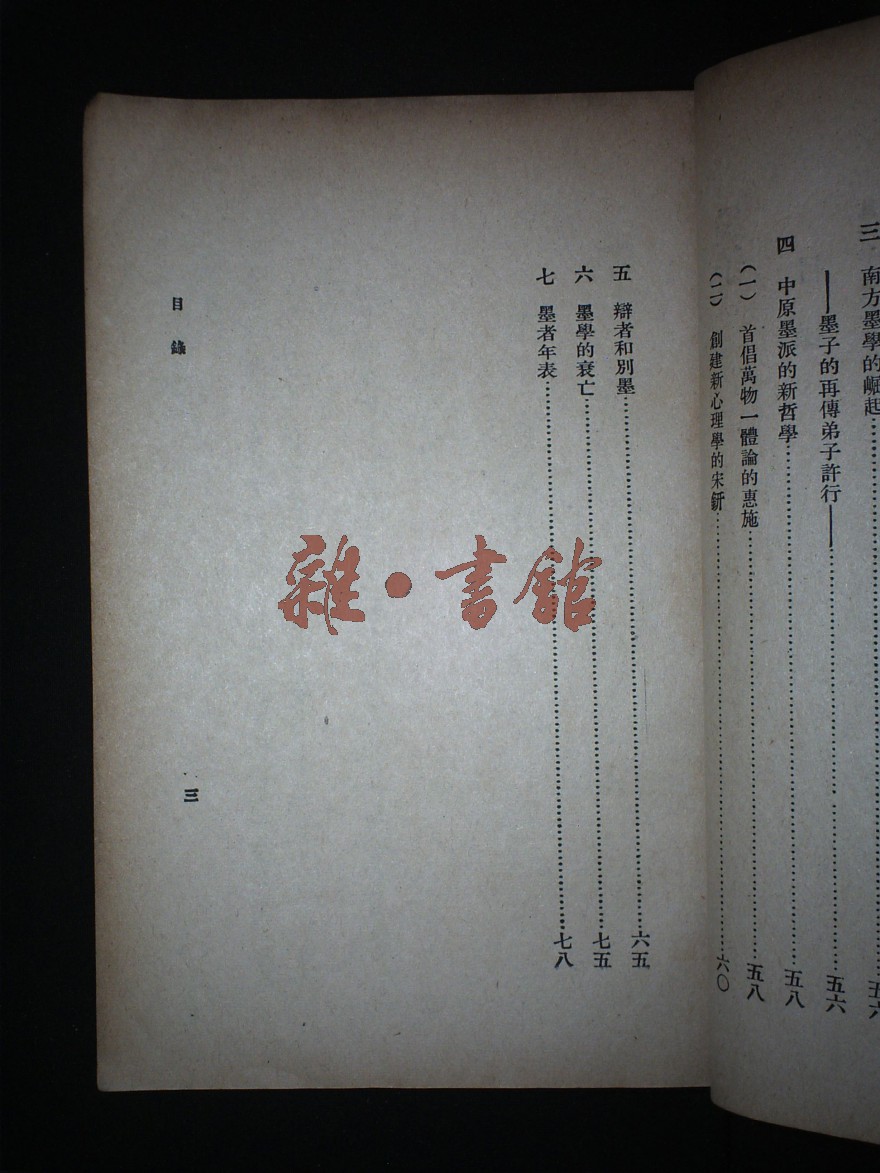 三　南方墨學的崛起……五六
——墨子的再傳弟子許行——……五六
四　中原墨派的新哲學……五八
（一）首倡萬物一體論的惠施……五八
（二）創建新心理學的宋鈃……六〇
五　辯者和別墨……六五
六　墨學的衰亡……七五
七　墨者年表……七八
目錄
三
雜·書館